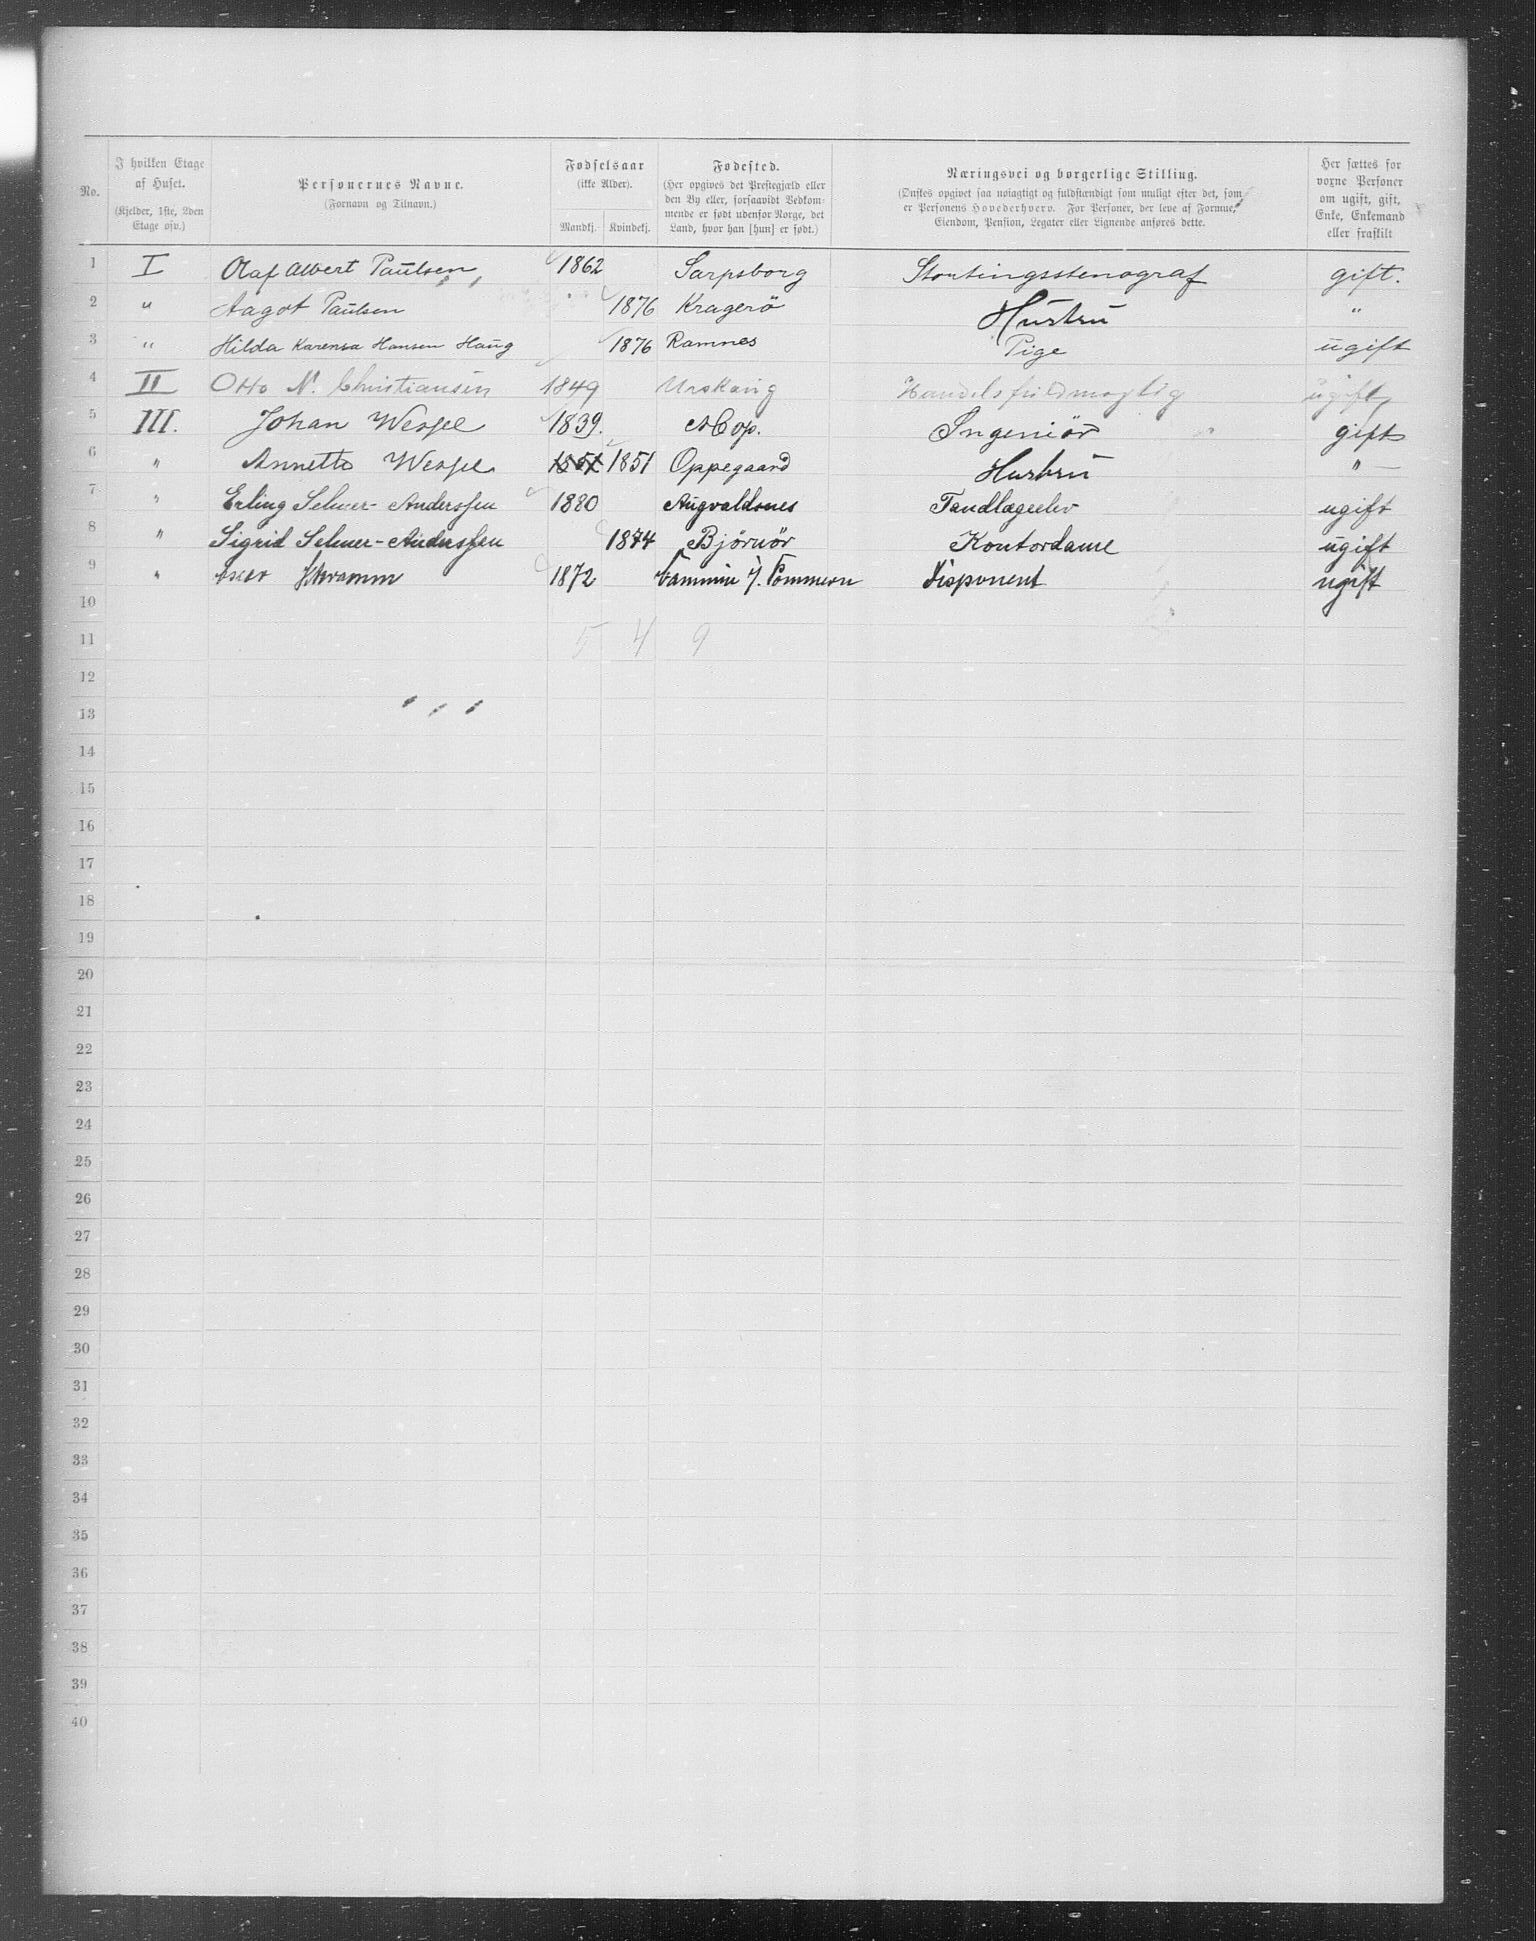 No.
I hvilken Etage af Huset.
(Kjelder, 1ste, 2den Etage osv.)
Personernes Navne.
(Fornavn og Tilnavn.)
Fødselsaar
(ikke Alder).
Mandkj. Kvindekj.
Fødested.
(Her opgives det Prestegjæld eller
den By eller, forsaavidt Vedkom-
mende er født udenfor Norge, det
Land, hvor han [hun] er født.)
Næringsvei og borgerlige Stilling.
(Ønskes opgivet saa nøiagtigt og fuldstændigt som muligt efter det, som
er Personens Hovederhverv. For Personer, der leve af Formue,
Eiendom, Pension, Legater eller Lignende anføres dette.
Her sættes for
voxne Personer
om ugift, gift,
Enke, Enkemand
eller fraskilt
1 I Olaf Albert Paulsen 1862 Sarpsborg Stortingsstenograf gift.
2 " Aagot Paulsen 1876 Kragerö Hustru "
3 " Hilda Karensa Hansen Haug 1876 Ramnes Pige ugift
4 II Otto N. Christiansen 1849 Urskaug Handelsfuldmægtig ugift
5 III. Johan Wessel 1839. Ingeniør gift
6 " Annette Wessel 1851 1851 Oppegaard Hustru " —
7 " Erling Selmer-Anderssen 1880 Augvaldsnes Tandlægeelev ugift
8 " Sigrid Selmer-Anderssen 1874 Bjørnör Kontordame ugift
9 " Schramm 1872 Cammin i/. Pommern Disponent ugift
10
11 5 4 9
12
13
14
15
16
17
18
19
20
21
22
23
24
25
26
27
28
29
30
31
32
33
34
35
36
37
38
39
40